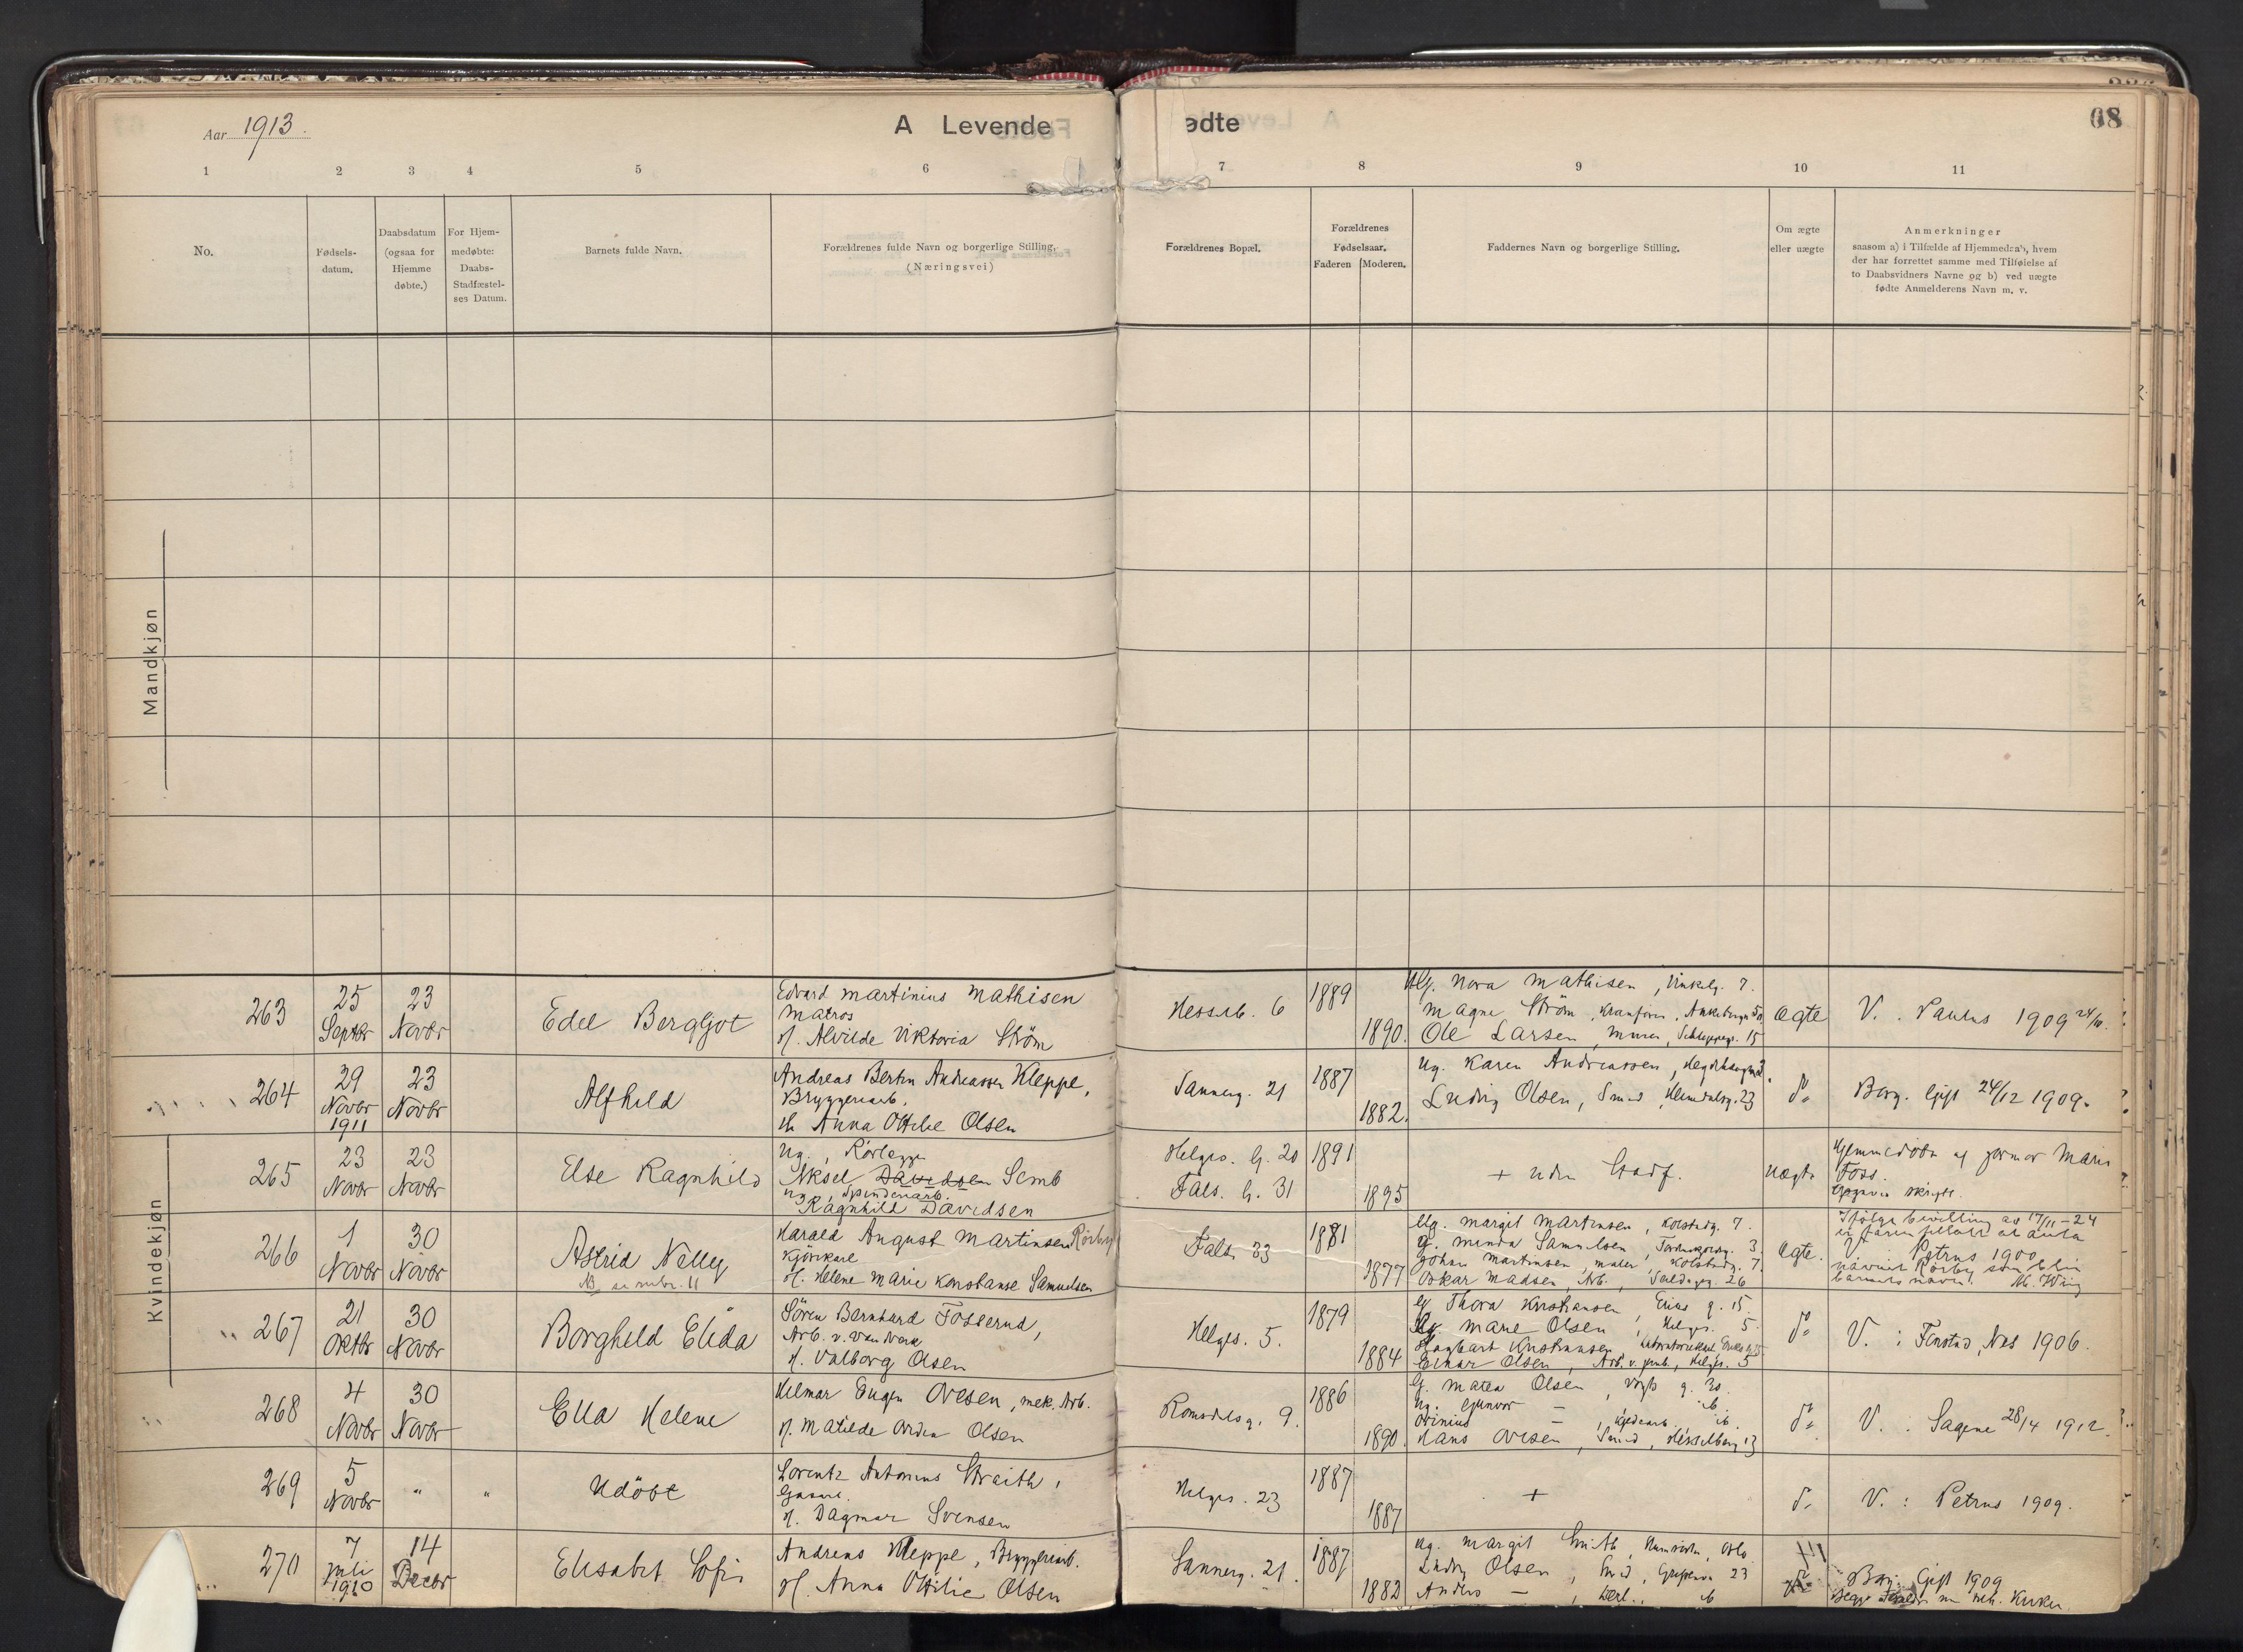 Aar 1913.
A Levende
ødte
68
1 2 3 4 5 6 7 8 9 10 11
No.
Fødsels-
datum.
Daabsdatum
(ogsaa for
Hjemme
døbte.)
For Hjem-
medøbte:
Daabs-
Stadfæstel-
ses Datum.
Barnets fulde Navn.
Forældrenes fulde Navn og borgerlige Stilling.
(Næringsvei)
Forældrenes Bopæl.
Forældrenes
Fødselsaar.
Faderen Moderen.
Faddernes Navn og borgerlige Stilling.
Om ægte
eller uægte
Anmerkninger
saasom a) i Tilfælde af Hjemmedaab, hvem
der har forrettet samme med Tilføielse af
to Daabsvidners Navne og b) ved uægte
fødte Anmelderens Navn m. v.
Mandkjøn
Kvindekjøn
263
25
Septbr
23
Novbr
Edel Bergljot
Edvard Martinius Mathisen
Matros
H. Alvilde Viktoria Ström
Hesselb. 6
1889
1890.
Ug. Nora Mathisen, Vinkelg. 7.
Magne Ström
Ole Larsen, Murer, Schleppegr. 15
ægte
V. Paulus 1909 24/10.
264
29
Novbr
1911
23
Novbr
Alfhild
Andreas Bertin Andreassen Kleppe,
Bryggeriarb.
H. Anna Ottilie Olsen
Sannerg. 21
1887
1882.
Ug. Karen Andreassen
Ludvig Olsen, Smed, Heimdalsg. 23
do
Borg. Gift 24/12 1909.
265
23
Novbr
23
Novbr
Else Ragnhild
Ug., Rörlægger
Aksel Davidsen Semb
Ug., Spinderiarb.
Ragnhild Davidsen
Helges. G. 20
Fals. G. 31
1891
1895
+ uden Stadf.
uægte
Hjemmedöbt af jormor Marie
Foss.
266
1
Novbr
30
Novbr
Astrid Nelly
Harald August Martinsen Rörby
Kjörekarl
H. Helene Marie Konstanse Samuelsen
Fals. 33
1881
1877
Ug. Margit Martinsen, Kolstadg. 7.
G. Minda Samuelsen
Johan Martinsen, Maler, Kolstadg. 7.
Oskar Madsen, Arb.
ægte.
Ifölge bevilling av 17/11-24
V. Petrus 1900
navnet Rörby som blir
barnets navn.
267
21
Oktbr
30
Novbr
Borghild Elida
Sören Bernhard Fosserud,
Arb. v. Vandverk
H. Valborg Olsen
Helges. 5.
1879
1884
G. Thora Kristiansen, Eriks g. 15.
Ug. Marie Olsen, Helges. 5
Einar Olsen, Helges. 5
do
V.: Fenstad, Nes 1906.
268
4
Novbr
30
Novbr
Ella Helene
Hilmar Eugen Ovesen, mek. Arb.
H. Matilde Olsen
Romsdalsg. 9.
1886
1890.
G. Matea Olsen, Vogts g. 30.
Ug. Gunvor - ib.
Hans Ovesen, Smed, Hesselberg 13
do
V.: Sagene 28/4 1912.
269
5
Novbr
"
"
Udöbt
Lorentz Antonius Straith,
Gasarb.
H. Dagmar Svensen
Helges. 23
1887
1887
+
do
V.: Petrus 1909.
270
7
Juli
1910
14
Decbr
Elisabet Sofie
Andreas Kleppe, Bryggeriarb.
H. Anna Ottilie Olsen
Sannerg. 21.
1887
1882
Ug. Margit Smith
Ludv. Olsen, Smed
Anders - ib
Borg. Gift 1909